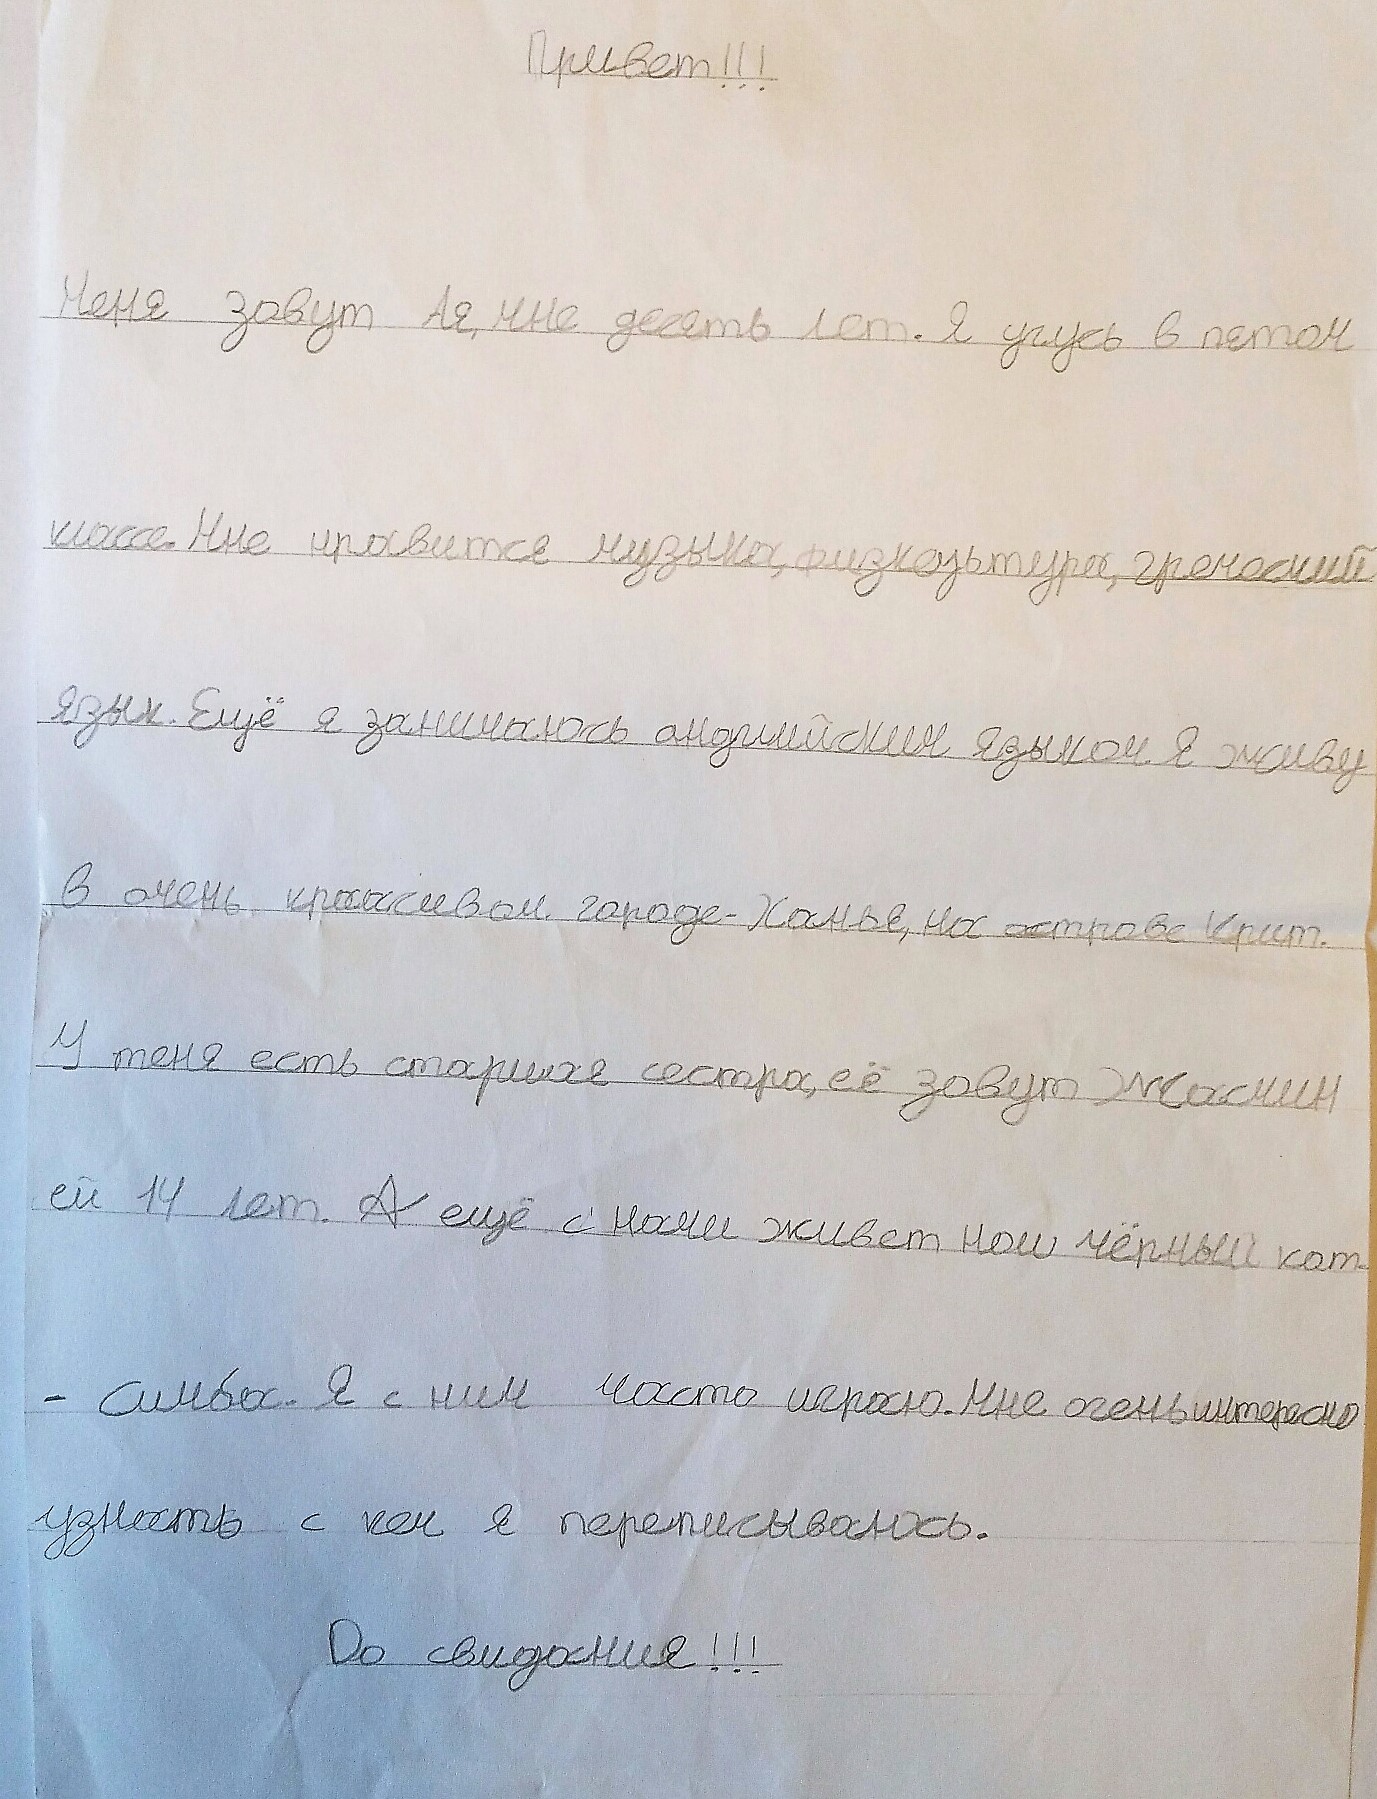 Привет!!!
Меня зовут Ая, мне десять лет. Я учусь в пятом
классе. Мне нравится музыка, физкультура, греческий
язык. Ещё я занимаюсь английским языком. Я живу
в очень красивом городе- Ханья, на острове Крит.
У меня есть старшая сестра, её зовут Жасмин
ей 14 лет. А ещё с нами живет наш чёрный кот-
- Симба. Я с ним часто играю. Мне очень интересно
узнать с кем я переписываюсь.
До свидания!!!